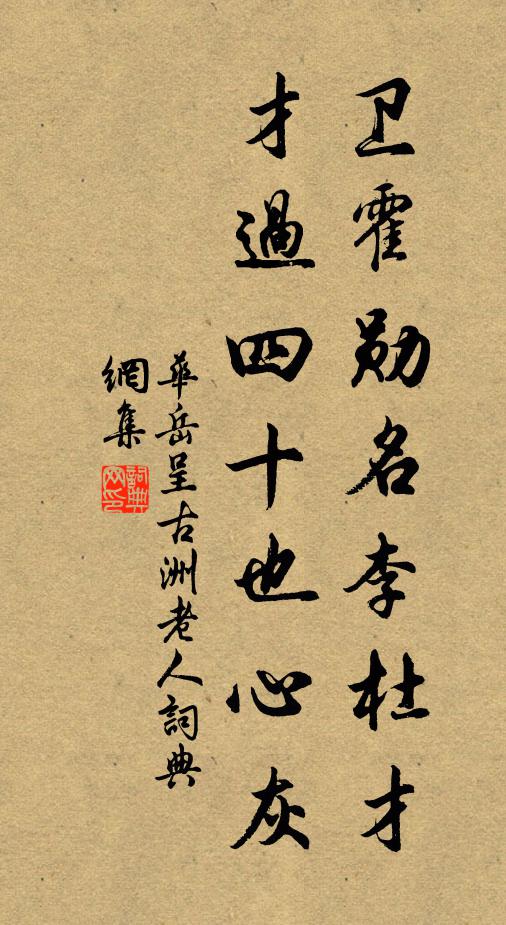 卫霍勋名李杜才
才過四十也心灰
華岳呈古洲老人詞典
網集
詞典網印